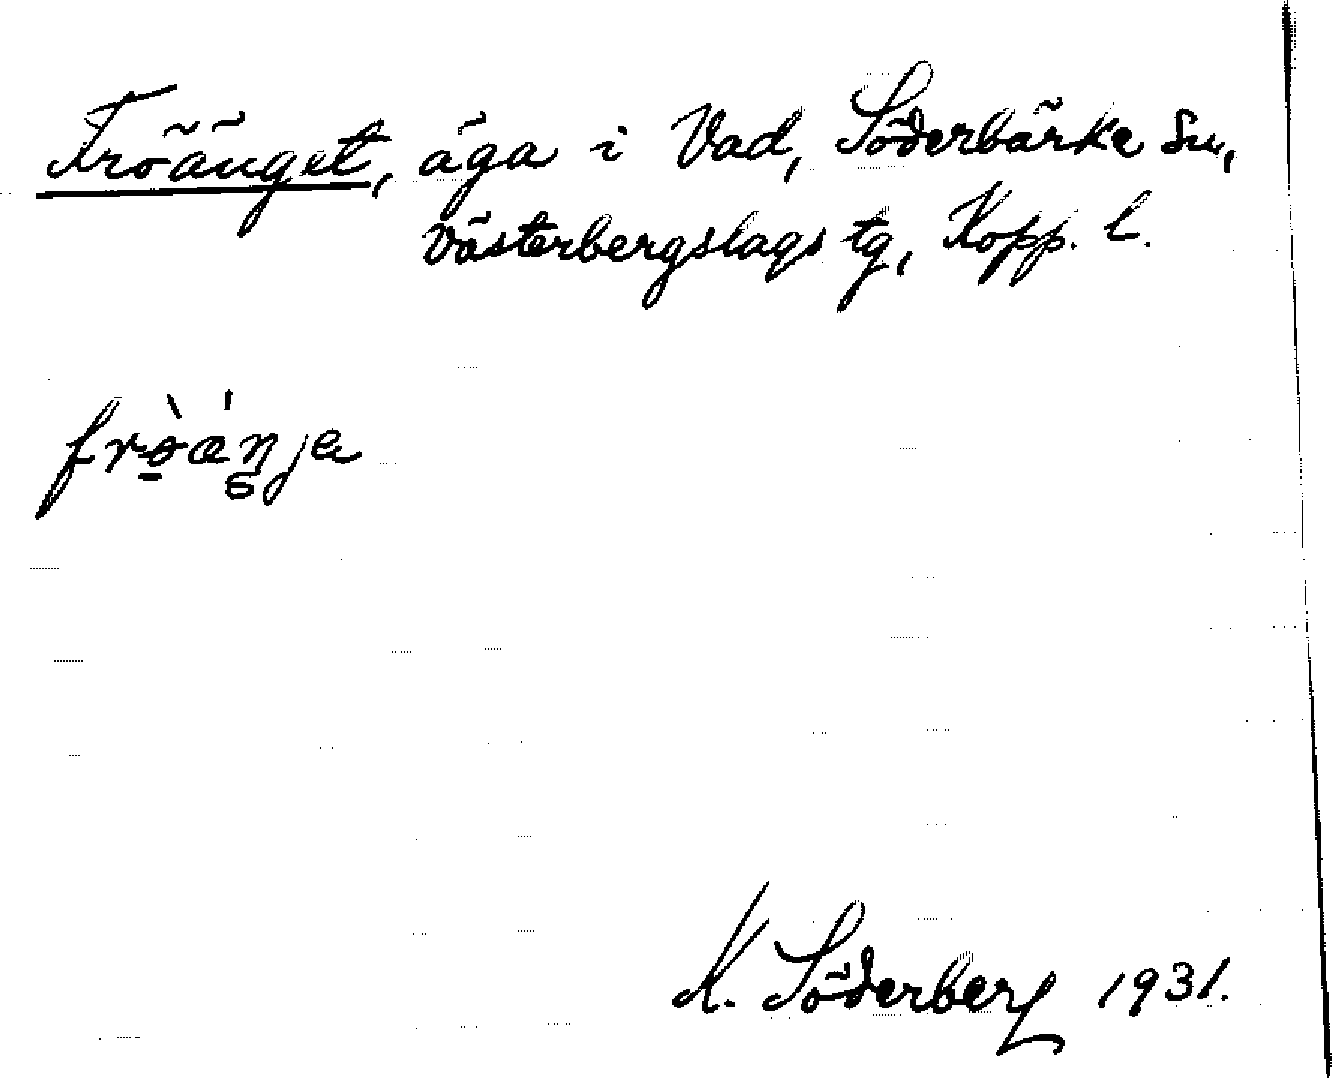 Fröänget, äga i Vad, Söderbärke sn,
Västerbergslags tg, Kopp. l.
frò̠æ̀ŋje
K. Söderberg 1931.